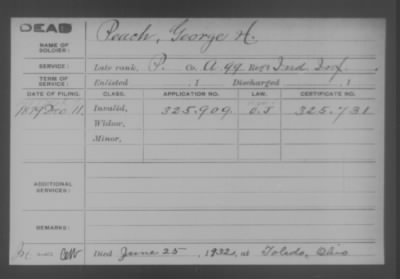 DEAD
NAME OF SOLDIER: Peach, George H.
SERVICE: Late rank, P. Co. A. 99 Reg't Ind. Inf.
TERM OF SERVICE: Enlisted , 1 Discharged , 1
DATE OF FILING. CLASS. APPLICATION NO. LAW. CERTIFICATE NO.
1879 Dec 11, Invalid, 325.909. 325.731
Widow,
Minor,
ADDITIONAL SERVICES:
REMARKS:
Died June 25, 1932, at Toledo, Ohio